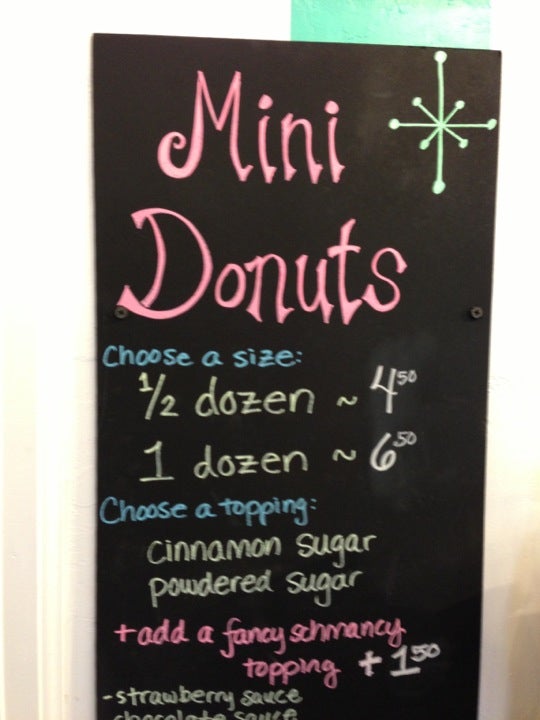 Mini
Donuts
Choose a size:
1/2 dozen ~ 4.50
1 dozen ~ 6.50
Choose a topping:
cinnamon sugar
powdered sugar
+ add a fancy schmancy
topping + 1.50
- strawberry sauce
chocolate sauce